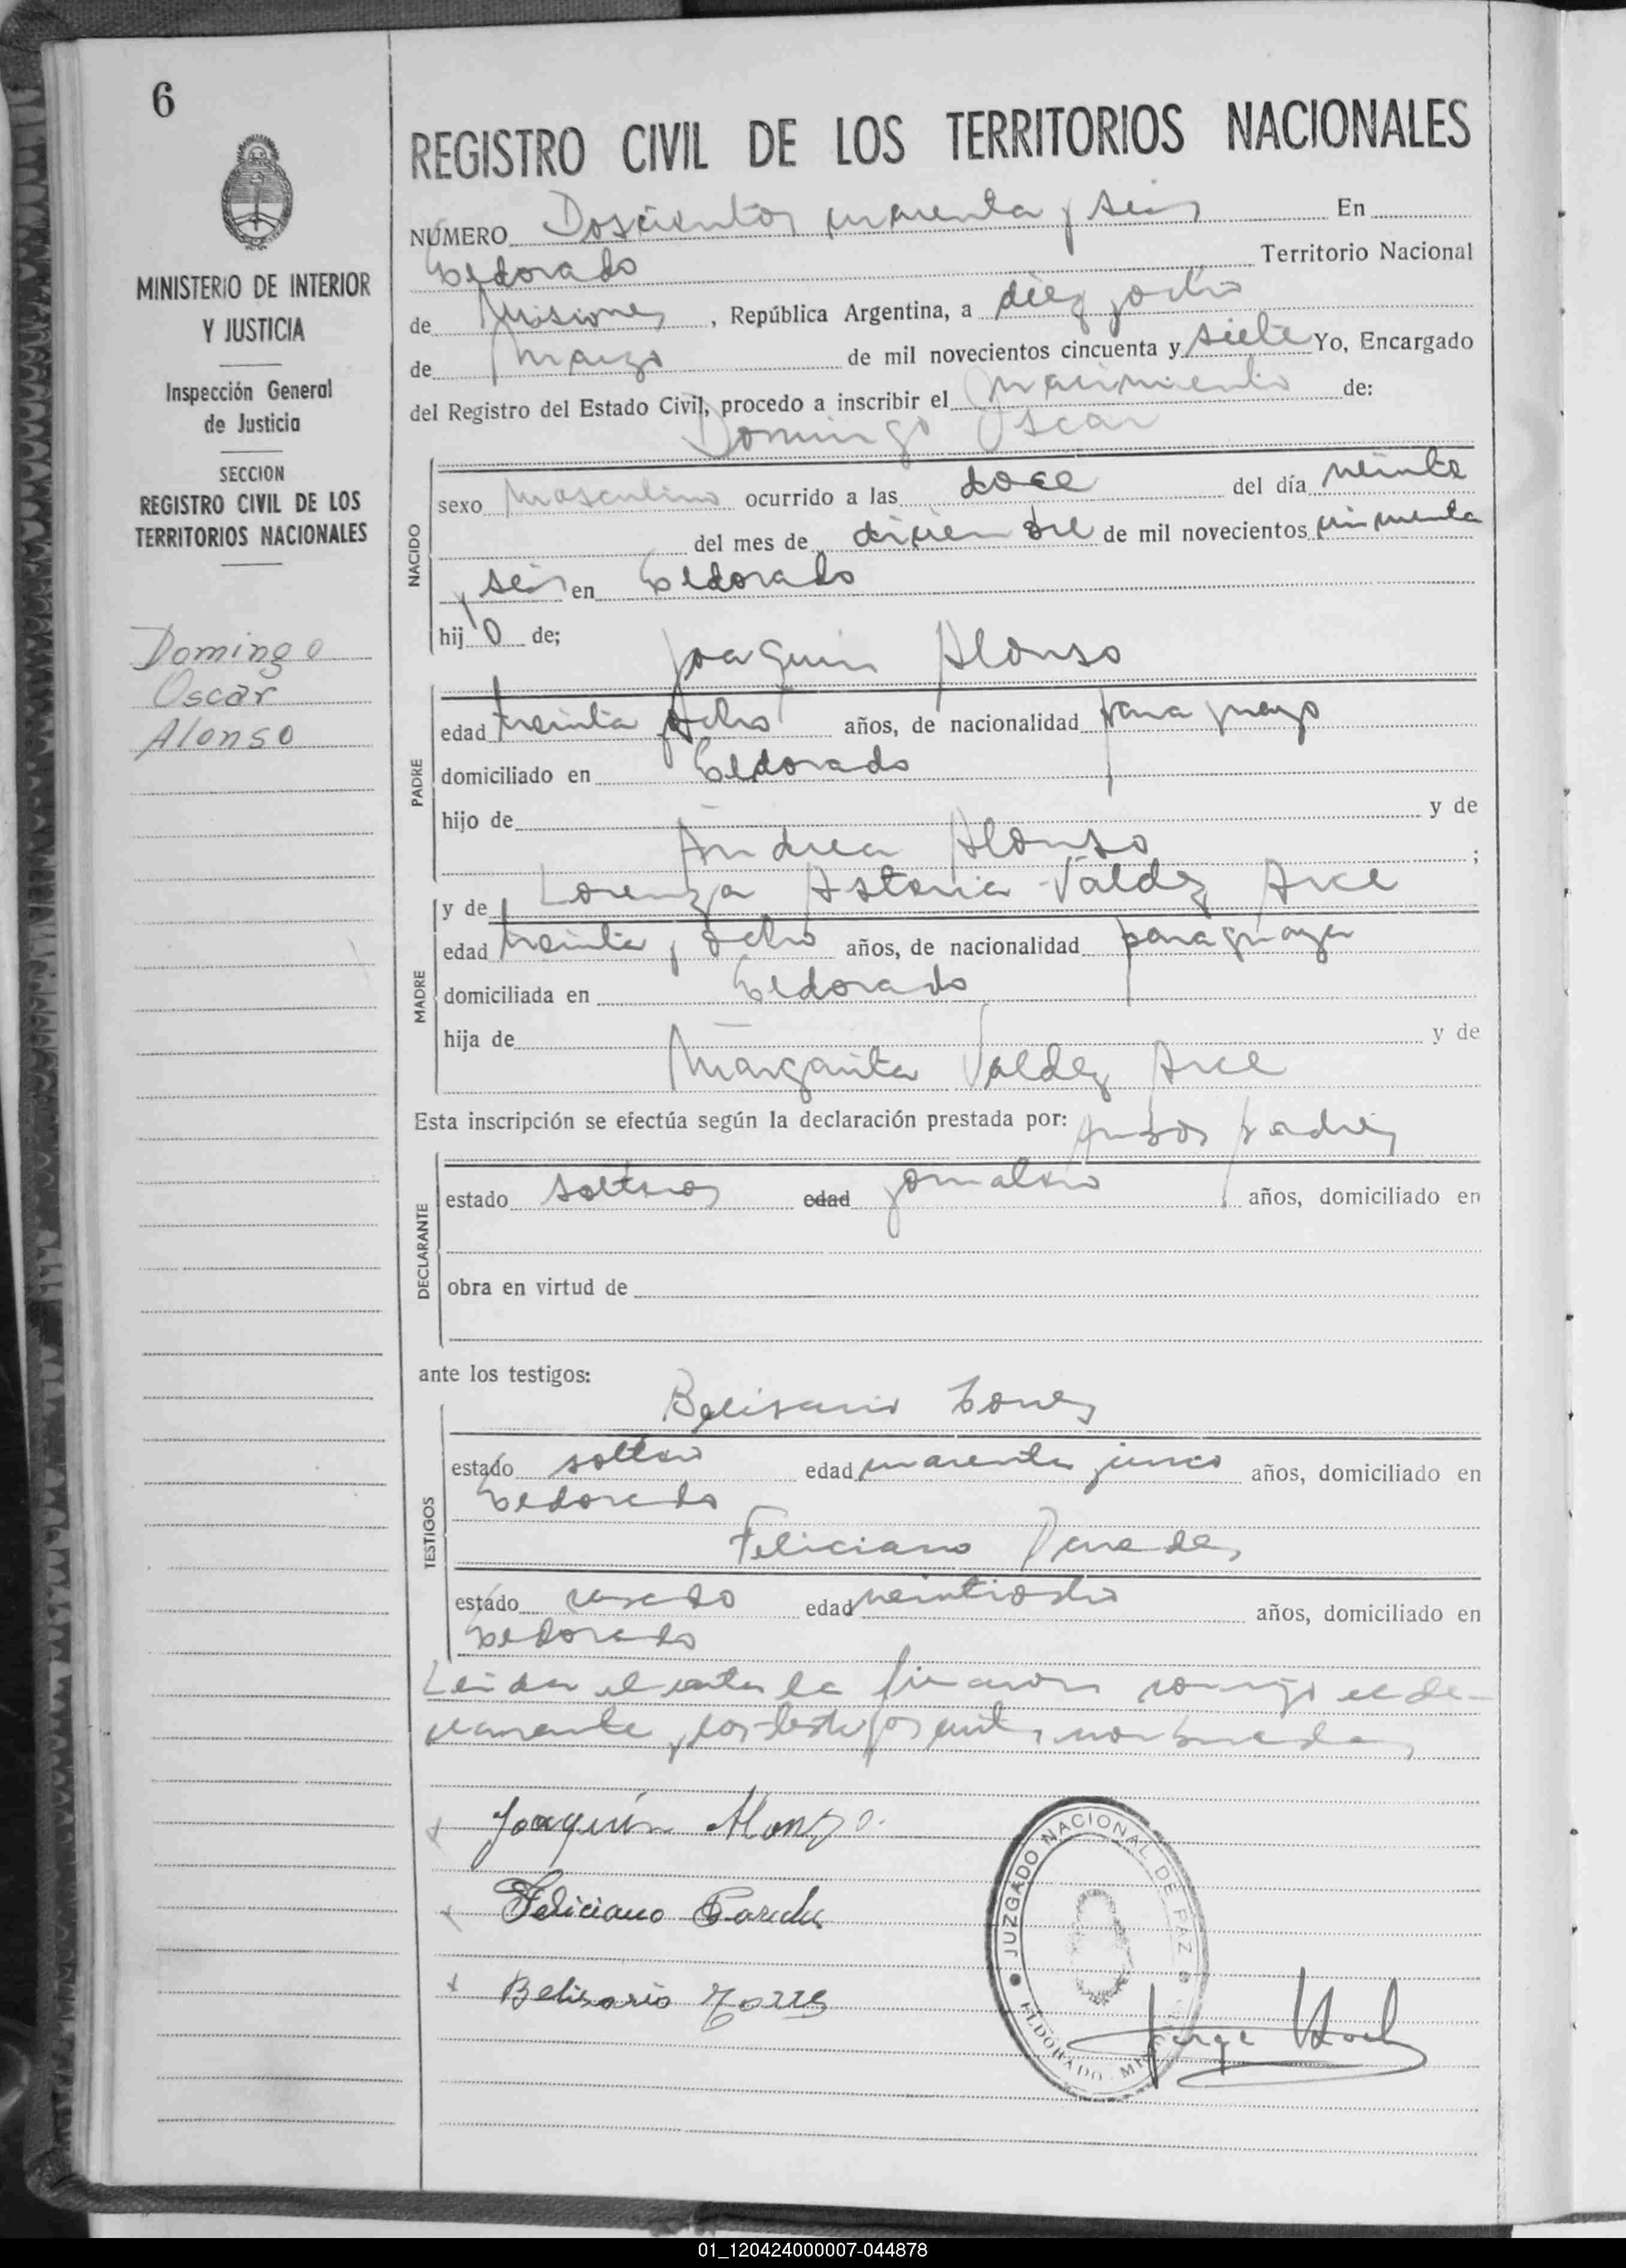 6
MINISTERIO DE INTERIOR
Y JUSTICIA
Inspección General
de Justicia
SECCION
REGISTRO CIVIL DE LOS
TERRITORIOS NACIONALES
Domingo
Oscar
Alonso
REGISTRO CIVIL DE LOS TERRITORIOS NACIONALES
NÚMERO Doscientos cuarenta y seis En
Eldorado Territorio Nacional
de Misiones, República Argentina, a diez y ocho
de marzo de mil novecientos cincuenta y siete Yo, Encargado
del Registro del Estado Civil, procedo a inscribir el nacimiento de:
Domingo Oscar
NACIDO
sexo masculino ocurrido a las doce del día veinte
del mes de diciembre de mil novecientos cincuenta
y seis en Eldorado
hijo de;
Joaquin Alonso
PADRE
edad treinta y ocho años, de nacionalidad paraguayo
domiciliado en Eldorado
hijo de y de
Andrea Alonso ;
y de Lorenza Astoria Valdez Arce
MADRE
edad treinta y ocho años, de nacionalidad paraguaya
domiciliada en Eldorado
hija de y de
Margarita Valdez Arce
Esta inscripción se efectúa según la declaración prestada por: ambos padres
DECLARANTE
estado solteros edad jornalero años, domiciliado en
obra en virtud de
ante los testigos:
Belisario Torres
TESTIGOS
estado soltero edad cuarenta y cinco años, domiciliado en
Eldorado
Feliciano Paredes
estado casado edad veintiocho años, domiciliado en
Eldorado
Leida el acta la firmaron conmigo el de-
clarante y los testigos antes nombrados
Joaquín Alonzo.
Feliciano Paredes
Belisario Torres
JUZGADO NACIONAL DE PAZ
ELDORADO
Jorge
01_120424000007-044878